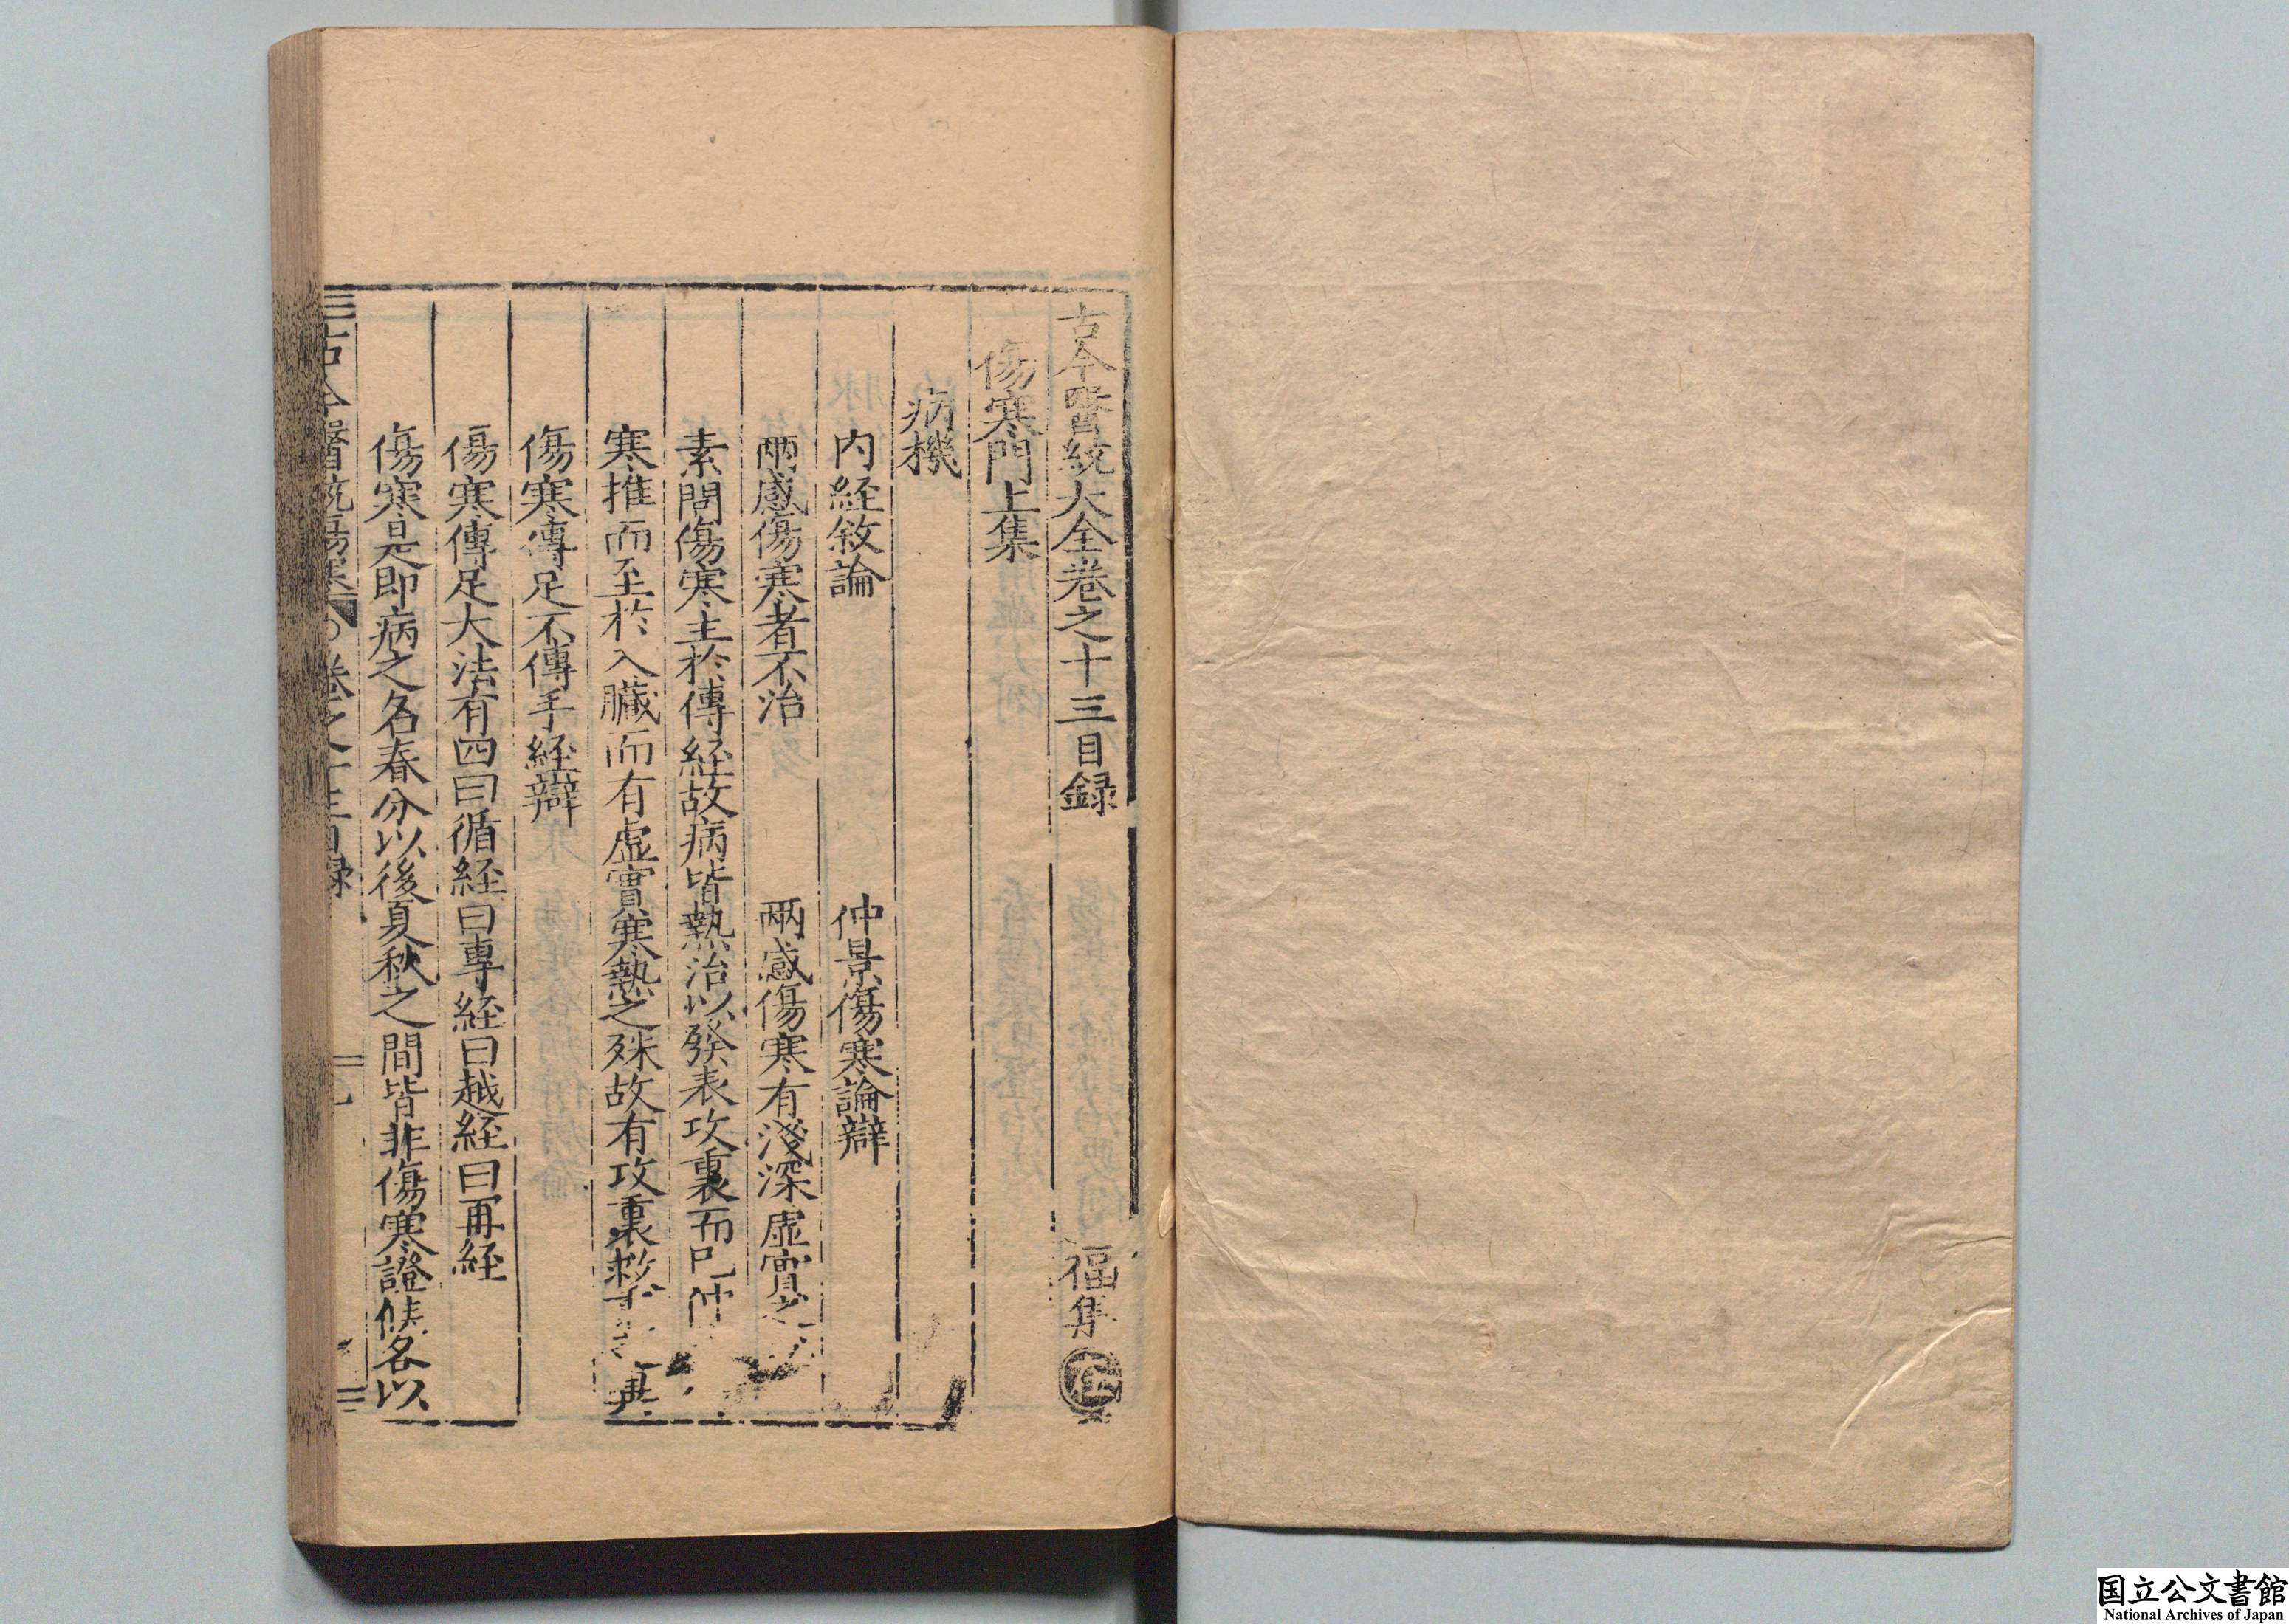 古今醫統大全卷之十三目録 福集
傷寒門上集
病機
内経敘論 仲景傷寒論辯
兩感傷寒者不治 兩感傷寒有淺深虚實之
素問傷寒主於傳経故病皆熱治以發表攻裏而已仲
寒推而至於入臓而有虚實寒熱之殊故有攻裏救
傷寒傳足不傳手経辯
傷寒傳足大法有四曰循経曰專経曰越経曰再経
傷寒是即病之名春分以後夏秋之間皆非傷寒證候名以
古今醫統傷寒 卷之十三目録
国立公文書館
National Archives of Japan